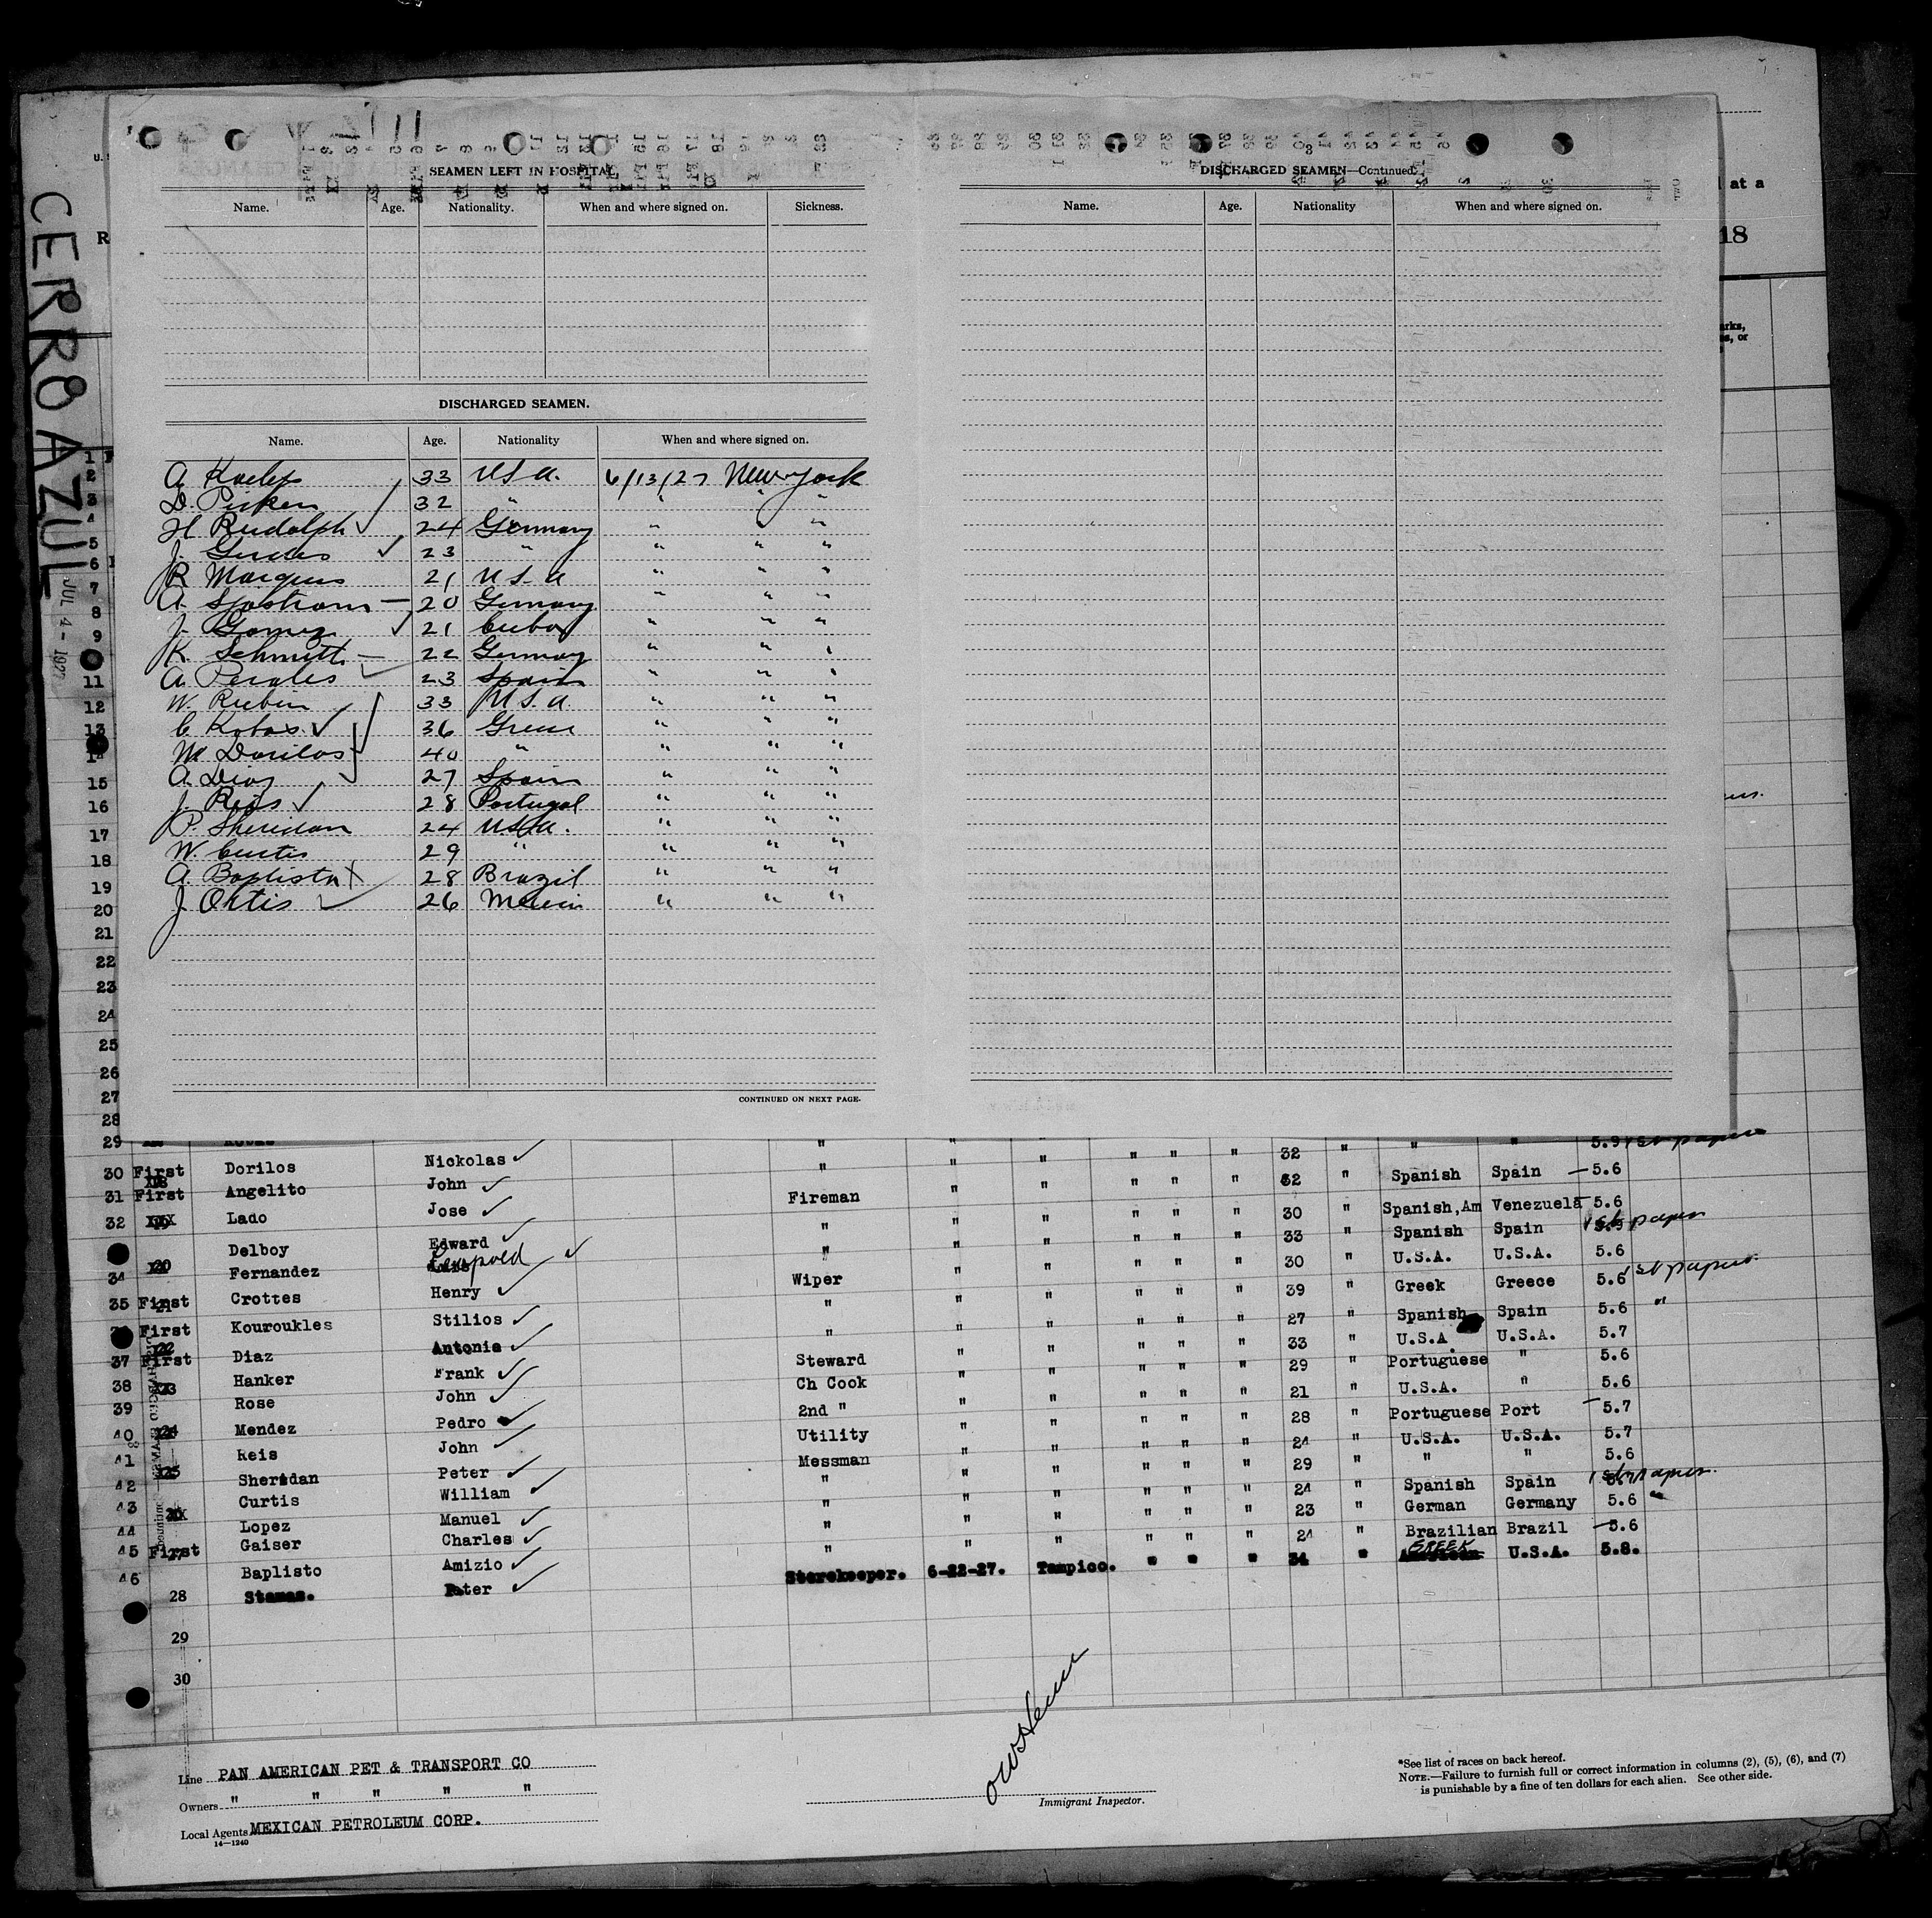 CERRO AZUL
JUL 4 - 1927
SEAMEN LEFT IN HOSPITAL.
Name. Age. Nationality. When and where signed on. Sickness.
DISCHARGED SEAMEN.
Name. Age. Nationality When and where signed on.
33 U S A. 6/13/27 New York
D. 32 " " " "
H Rudolph 24 Germany " " "
J. 23 " " " "
R Marques 21 U S. A " " "
A. 20 Germany " " "
J. Gomez 21 Cuba " " "
K. Schmitt 22 Germany " " "
A. Perales 23 Spain " " "
W. Rubin 33 U S. A " " "
C Kotas 36 Greece " " "
M Dorilos 40 " " " "
A. Diaz 27 Spain " " "
J. Reis 28 Portugal " " "
P. Sheridan 24 U S A. " " "
W. Curtis 29 " " " "
A. Baptista 28 Brazil " " "
J Ortis 26 Mexico " " "
CONTINUED ON NEXT PAGE.
3
DISCHARGED SEAMEN—Continued.
Name. Age. Nationality When and where signed on.
at a
18
1
2
3
4
5
6
7
8
9
11
12
13
14
15
16
17
18
19
20
21
22
23
24
25
26
27
28
29 " " " 5.9 1st papers
30 First Dorilos Nickolas " " " " " " 32 " Spanish Spain — 5.6
31 First Angelito John Fireman " " " " " 32 " Spanish,Am Venezuela 5.6
32 Lado Jose " " " " " " 30 " Spanish Spain 1st papers
Delboy Edward " " " " " " 33 " U.S.A. U.S.A. 5.6
34 20 Fernandez Leopold Wiper " " " " " 30 " Greek Greece 5.6 1st papers
35 First 21 Crottes Henry " " " " " " 39 " Spanish Spain 5.6 "
First Kouroukles Stilios " " " " " " 27 " U.S.A. U.S.A. 5.7
37 First 22 Diaz Antonio Steward " " " " " 33 " Portuguese " 5.6
38 23 Hanker Frank Ch Cook " " " " " 29 " U.S.A. " 5.6
39 Rose John 2nd " " " " " " 21 " Portuguese Port — 5.7
40 24 Mendez Pedro Utility " " " " " 28 " U.S.A. U.S.A. 5.7
41 Reis John Messman " " " " " 24 " " " 5.6
42 25 Sheridan Peter " " " " " " 29 " Spanish Spain 1st papers.
43 Curtis William " " " " " " 24 " German Germany 5.6 "
44 26 Lopez Manuel " " " " " " 23 " Brazilian Brazil — 5.6
45 First 27 Gaiser Charles " " " " " " 24 " GREEK U.S.A. 5.8.
46 Baplisto Amizio Storekeeper. 6-22-27. Tampico. " " " 34 "
28 Stamas. Peter
29
30
Line PAN AMERICAN PET & TRANSPORT CO
Owners " " " " "
Local Agents MEXICAN PETROLEUM CORP.
14—1240
Immigrant Inspector.
*See list of races on back hereof.
NOTE.—Failure to furnish full or correct information in columns (2), (5), (6), and (7)
is punishable by a fine of ten dollars for each alien. See other side.